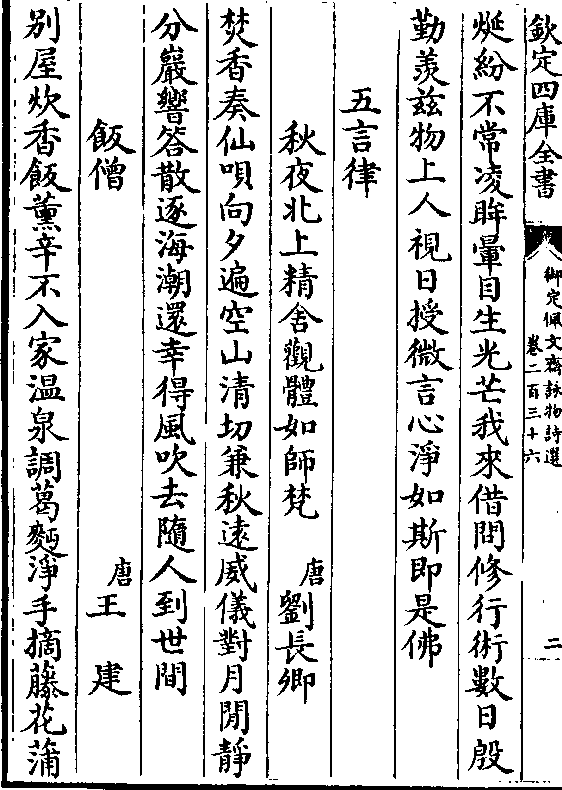 欽定四庫全書
御定佩文齋詠物詩選
卷二百三十六
二
烻紛不常凌眸暈目生光芒我來借問修行術數日殷
勤羡兹物上人視日授微言心淨如斯即是佛
五言律
秋夜北上精舍觀體如師梵 唐 劉長卿
焚香奏仙唄向夕遍空山清切兼秋遠威儀對月閒静
分巖響答散逐海潮還幸得風吹去隨人到世間
飯僧 唐 王建
别屋炊香飯薰辛不入家温泉調葛麪淨手摘藤花蒲